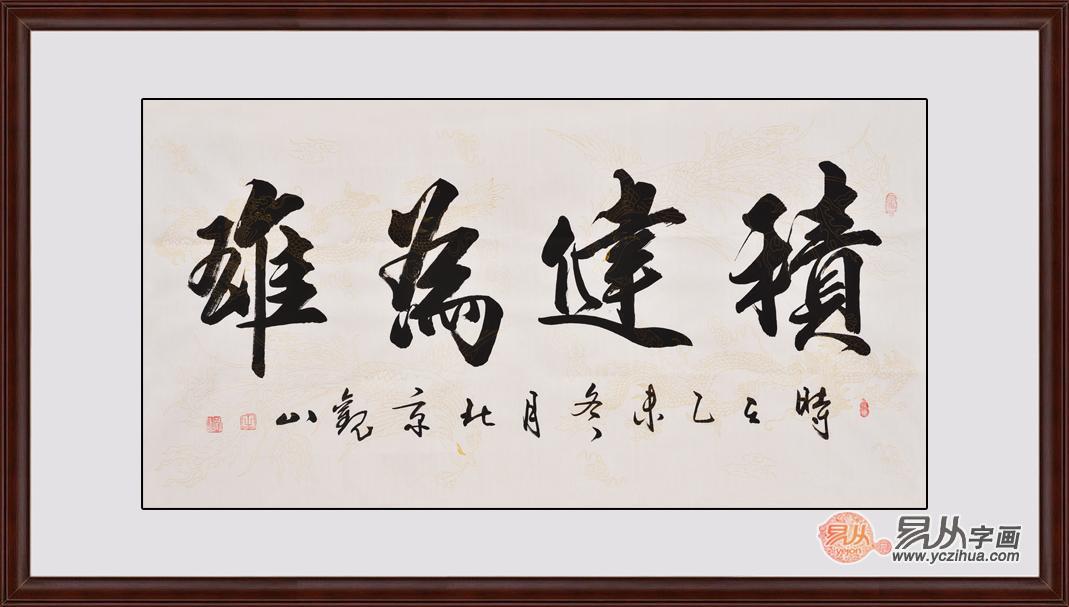 積健為雄
時在乙未冬月北京觀山
易从字画
www.yczihua.com
易从